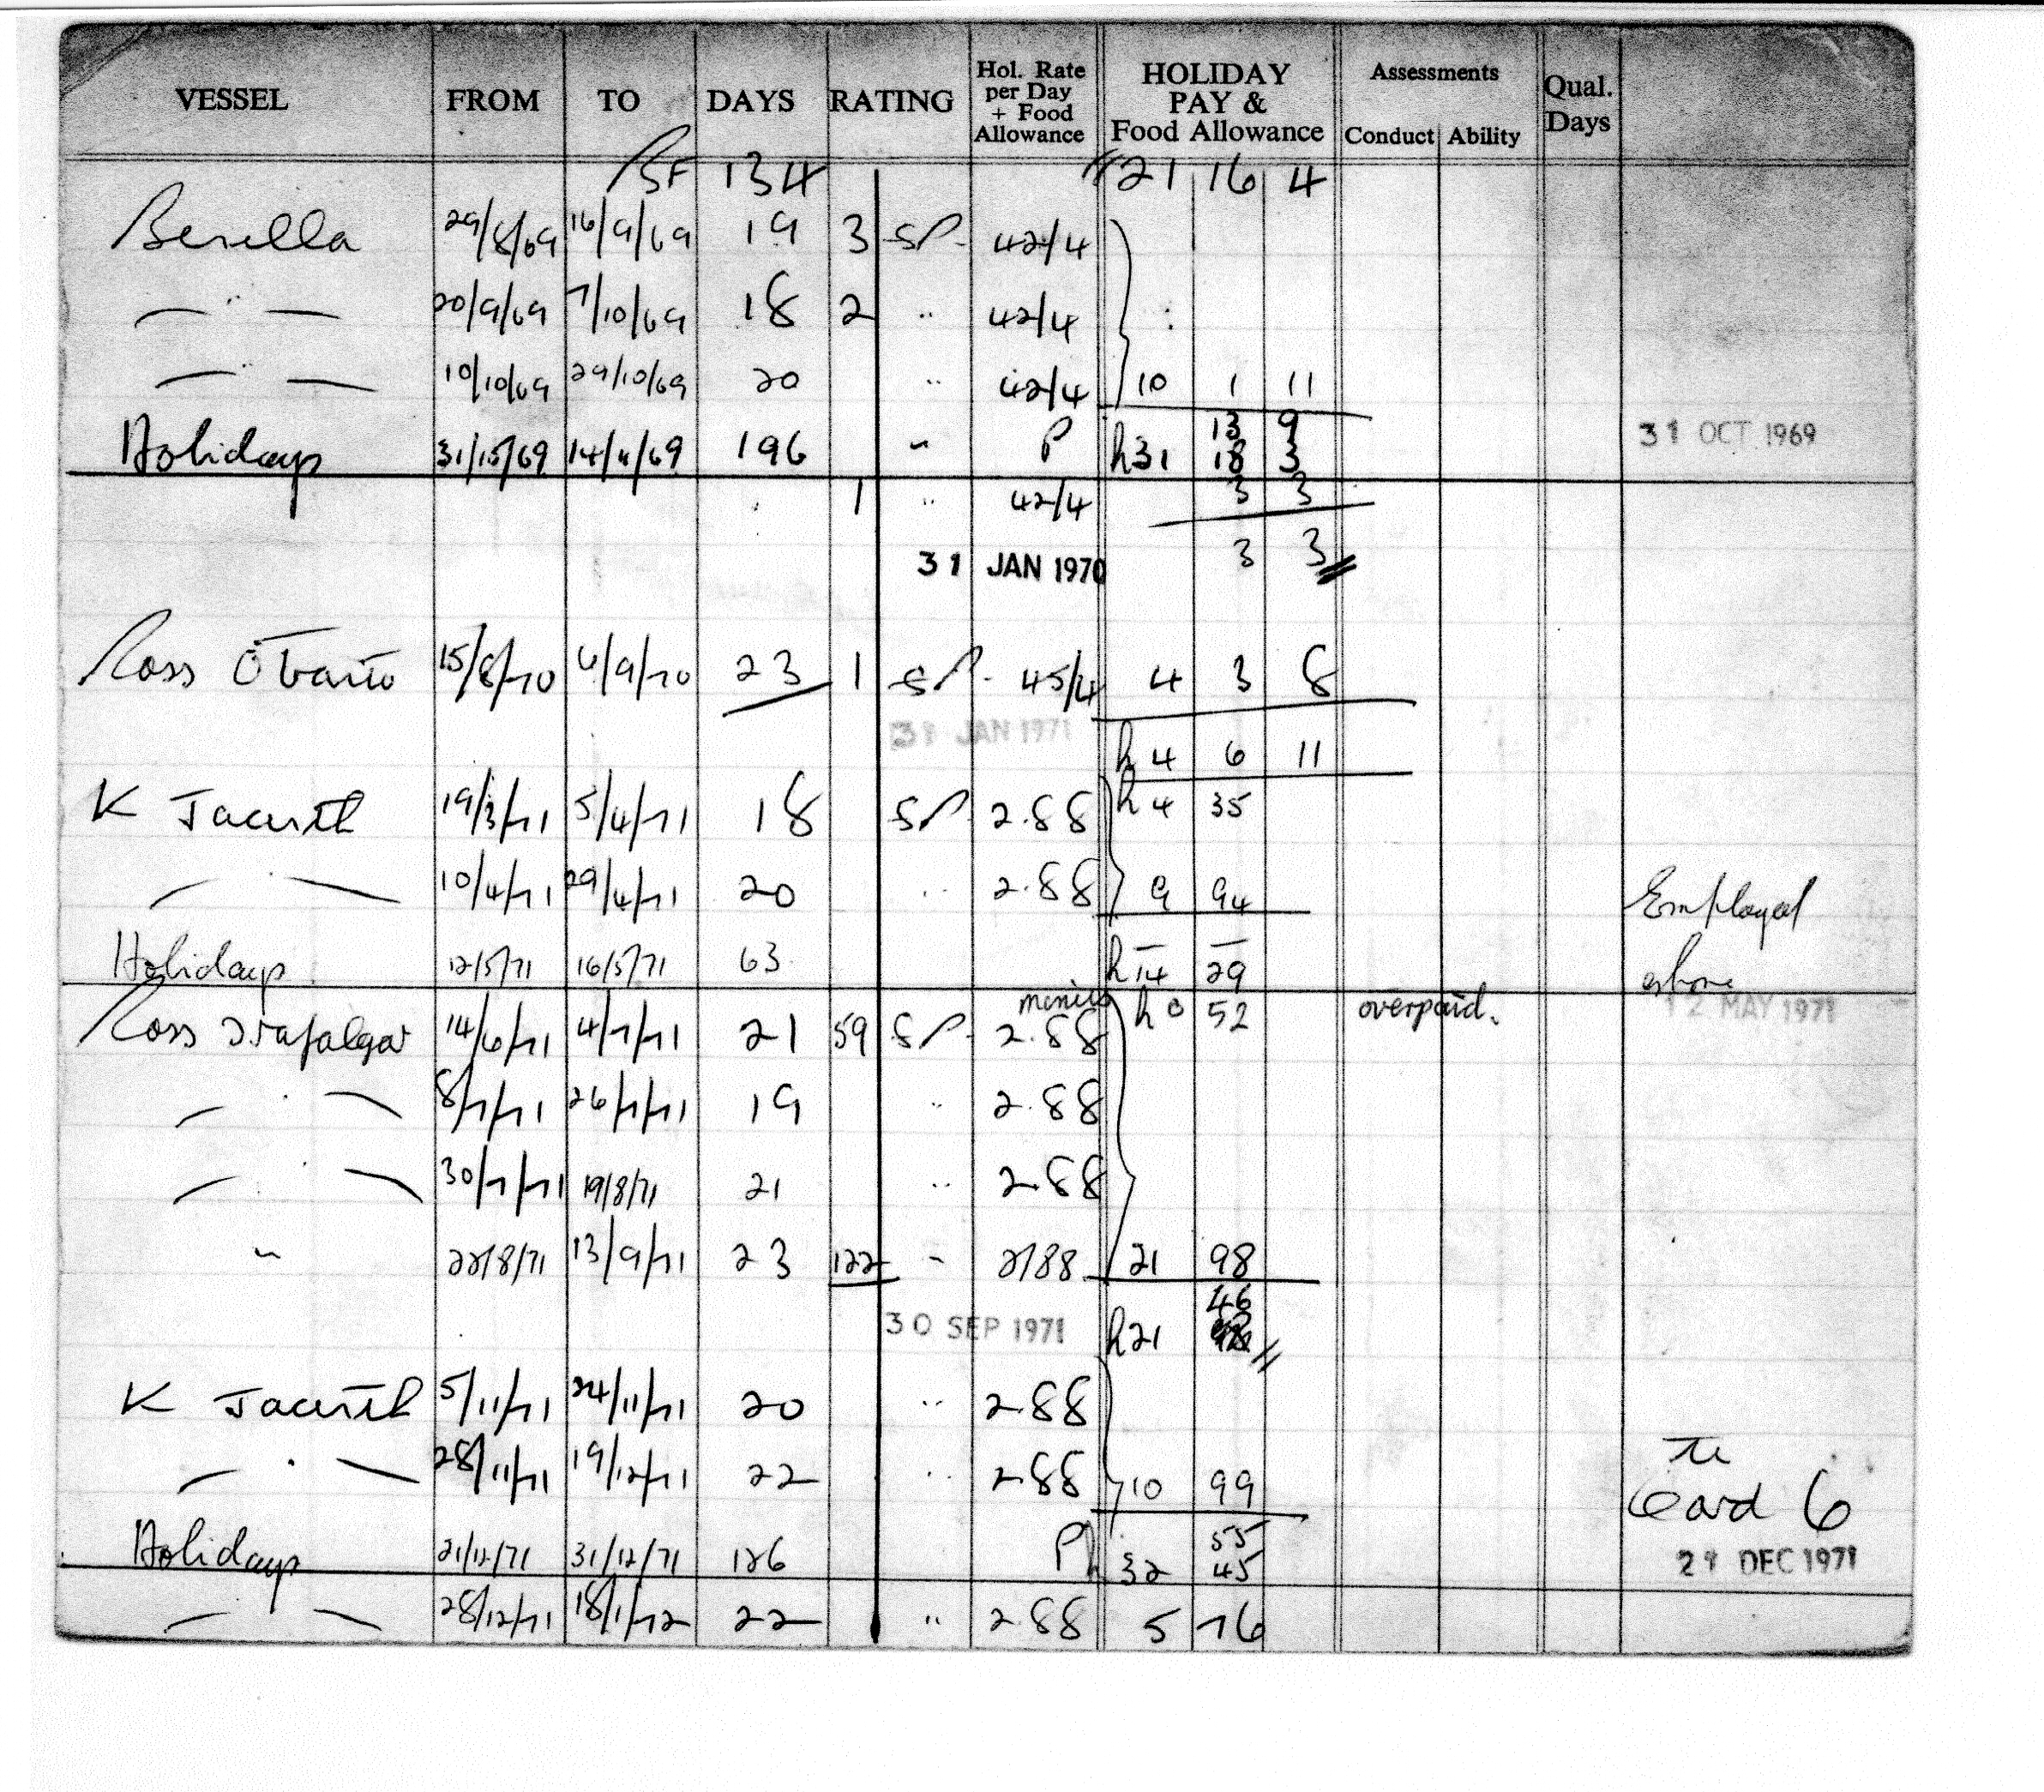 VESSEL FROM TO DAYS RATING Hol. Rate per Day + Food Allowance HOLIDAY PAY & Food Allowance Assessments Conduct Ability Qual. Days
BF 134 21 16 4
Benella 29/8/69 16/9/69 19 3 SP. 42/4
— " — 20/9/69 7/10/69 18 2 " 42/4
— " — 10/10/69 29/10/69 20 " 42/4 10 1 11
13 9
Holidays 31/10/69 14/11/69 196 " P h31 18 3 31 OCT 1969
1 " 42/4 3 3
31 JAN 1970 3 3
Ross Otranto 15/8/70 6/9/70 23 1 SP. 45/4 4 3 8
31 JAN 1971
h 4 6 11
K Jacinth 19/3/71 5/4/71 18 SP. 2.88 h 4 35
— " — 10/4/71 29/4/71 20 " 2.88 9 94 Employed
Holidays 12/5/71 16/5/71 63 h 14 29 ashore
Ross Trafalgar 14/6/71 4/7/71 21 59 SP. 2.88 h 0 52 overpaid. 12 MAY 1971
— " — 8/7/71 26/7/71 19 " 2.88
— " — 30/7/71 19/8/71 21 " 2.88
" 22/8/71 13/9/71 23 122 " 2/88 21 98
46
30 SEP 1971 h21
K Jacinth 5/11/71 24/11/71 20 " 2.88
— " — 28/11/71 19/12/71 22 " 2.88 10 99 Card 6
55
Holidays 21/12/71 31/12/71 126 P h 32 45 21 DEC 1971
— — 28/12/71 18/1/72 22 " 2.88 5 76